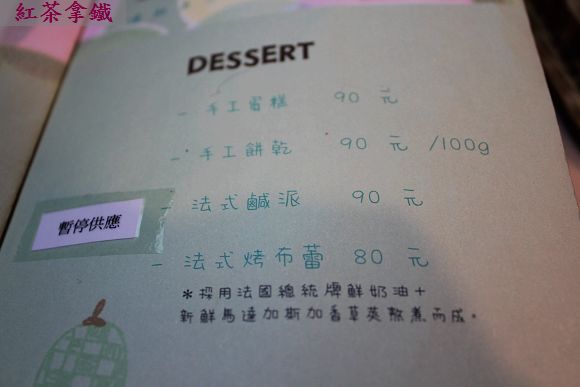 紅茶拿鐵
DESSERT
- 手工蛋糕 90 元
- 手工餅乾 90 元 /100g
- 法式鹹派 90 元
暫停供應
- 法式烤布蕾 80 元
*採用法國總統牌鮮奶油+
新鮮馬達加斯加香草莢熬煮而成。